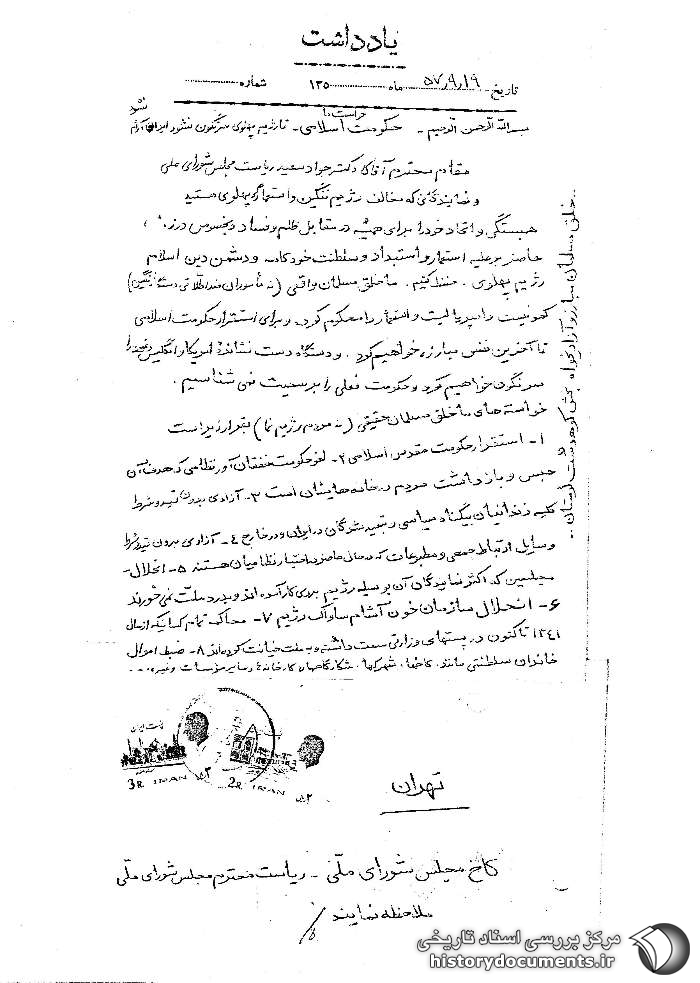 یادداشت
تاریخ ۵۷/۹/۱۹ ماه ۱۳۵ شماره
بسم الله الرحمن الرحیم - حکومت اسلامی - تا رژیم پهلوی سرنگون نشود ایران آرام نشود
مقام محترم آقای دکتر جواد سعید ریاست مجلس شورای ملی
و نمایندگانی که مخالف رژیم ننگین و استعمارگر پهلوی هستید
همبستگی و اتحاد خود را برای همیشه در مقابل ظلم و فساد و بخصوص در
حاضر بر علیه استعمار و استبداد و سلطنت خودکامه و دشمن دین اسلام
رژیم پهلوی. حفظ کنیم. ما خلق مسلمان واقعی (نه مأموران ضد اطلاعاتی دستگاه ننگین)
کمونیست و امپریالیست و استعمار را محکوم کرده و برای استقرار حکومت اسلامی
تا آخرین نفس مبارزه خواهیم کرد. و دستگاه دست نشانده امریکا و انگلیس و غیره را
سرنگون خواهیم کرد و حکومت فعلی را برسمیت نمی شناسیم.
خواسته های ما خلق مسلمان حقیقی (نه مردم رژیم نما) بقرار زیر است
۱- استقرار حکومت مقدس اسلامی ۲- لغو حکومت خفقان آور نظامی که هدف آن
حبس و بازداشت مردم در خانه هایشان است ۳- آزادی بدون قید و شرط
کلیه زندانیان بیگناه سیاسی و تبعید شدگان در ایران و در خارج ۴- آزادی بدون قید و شرط
وسایل ارتباط جمعی و مطبوعات که در حال حاضر در اختیار نظامیان هستند ۵- انحلال
مجلسین که اکثر نمایندگان آن بوسیله رژیم روی کار آمده اند و بدرد ملت نمی خورند
۶- انحلال سازمان خون آشام ساواک رژیم ۷- محاکمه تمام کسانیکه از سال
۱۳۴۱ تاکنون در پستهای وزارتی سمت داشته و به ملت خیانت کرده اند ۸- ضبط اموال
خاندان سلطنتی مانند. کاخها. شهرکها. شکارگاهها و کارخانه ها و سایر مؤسسات و غیره...
خلق مسلمان مبارز و آزادیخواه بخش کوهدشت لرستان
پست ایران
3R IRAN ۳ 2R IRAN ۲
تهران
کاخ مجلس شورای ملّی - ریاست محترم مجلس شورای ملّی
ملاحظه نمایند
مرکز بررسی اسناد تاریخی
historydocuments.ir